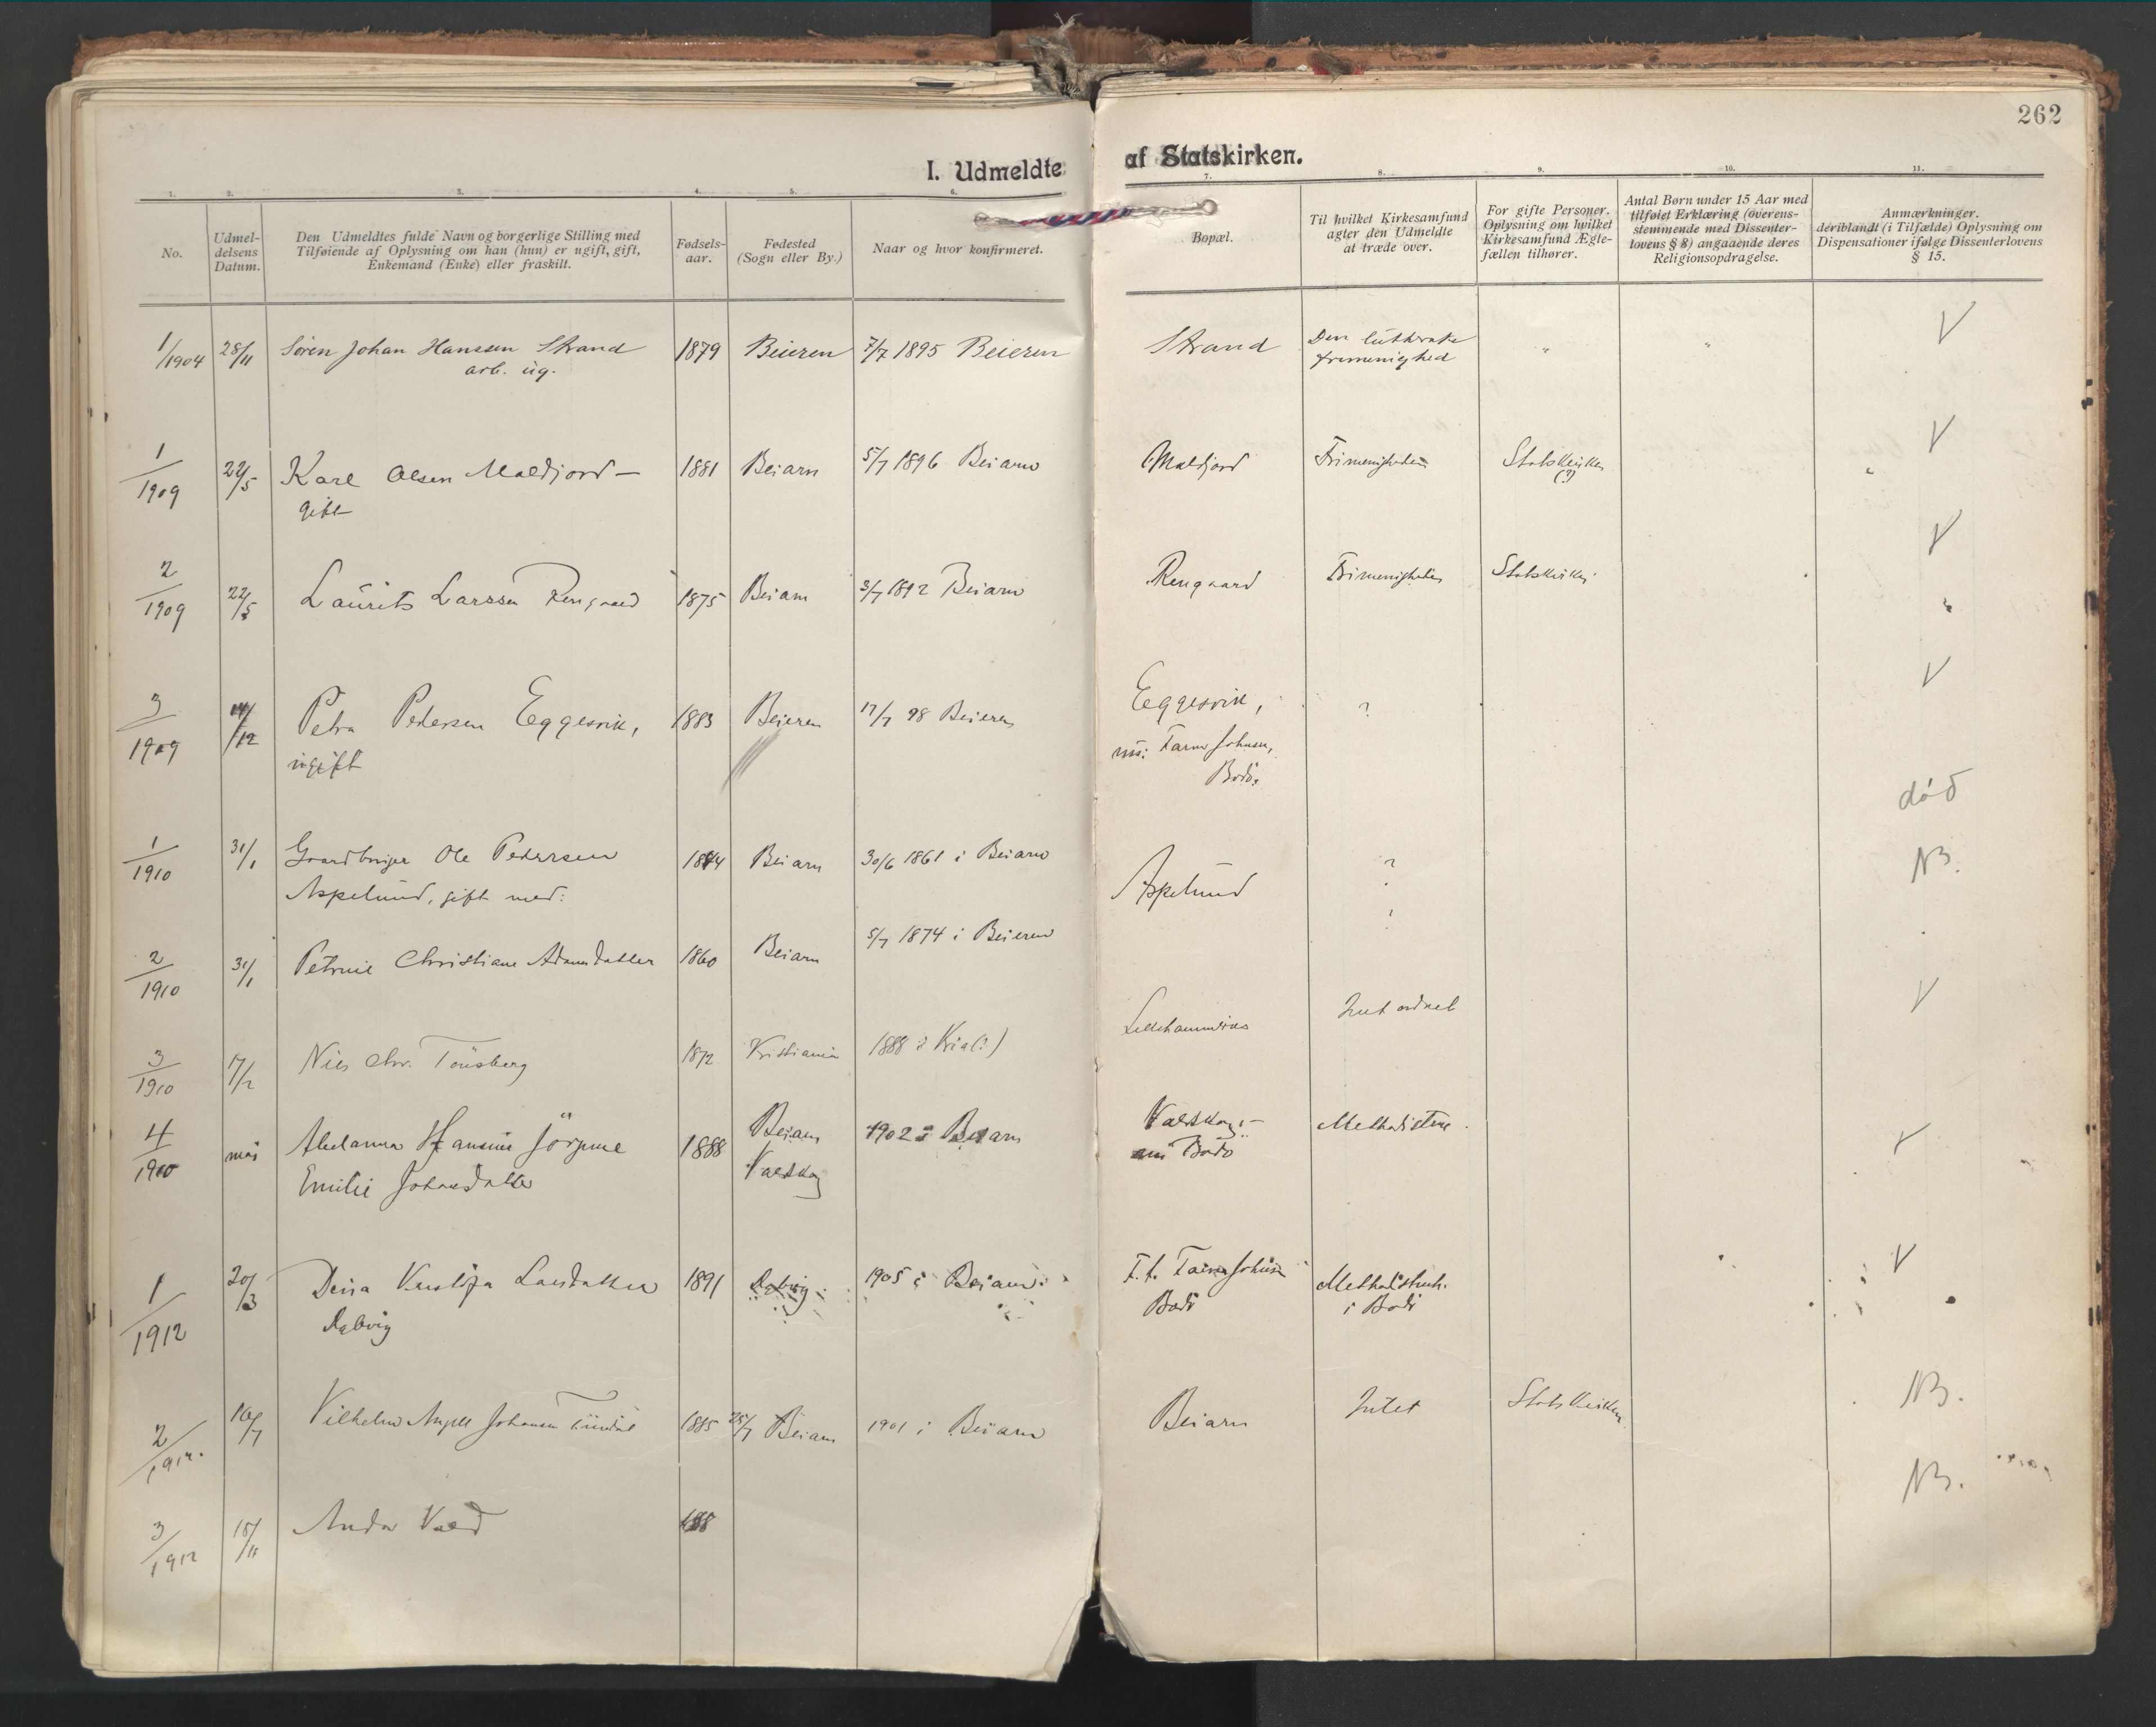 262
I. Udmeldte af Statskirken.
1. 2. 3. 4. 5. 6. 7. 8. 9. 10. 11.
No.
Udmel-
delsens
Datum.
Den Udmeldtes fulde Navn og borgerlige Stilling med
Tilføiende af Oplysning om han (hun) er ugift, gift,
Enkemand (Enke) eller fraskilt.
Fødsels-
aar.
Fødested
(Sogn eller By.)
Naar og hvor konfirmeret.
Bopæl.
Til hvilket Kirkesamfund
agter den Udmeldte
at træde over.
For gifte Personer.
Oplysning om hvilket
Kirkesamfund Ægte-
fællen tilhører.
Antal Børn under 15 Aar med
tilføiet Erklæring (overens-
stemmende med Dissenter-
lovens § 8) angaaende deres
Religionsopdragelse.
Anmærkninger.
deriblandt (i Tilfælde) Oplysning om
Dispensationer ifølge Dissenterlovens
§ 15.
1/1904 28/11 Sören Johan Hanssen Strand 1879 Beieren 7/7 1895 Beieren Strand Den lutherske " " V
arb. ug. frimenighed
1/1909 22/5 Karl Olsen Moldjord — 1881 Beiarn 5/7 1896 Beiarn Moldjord Frimenigheden Statskirken " V
gift (?)
2/1909 22/5 Laurits Larssen Rengaard 1875 Beiarn 3/7 1892 Beiarn Rengaard Frimenigheden Statskirken V
3/1909 14/12 Petra Pedersen Eggesvik, 1883 Beieren 17/7 98 Beieren Eggesvik, ? V
ugift nu: Farver Johnsen,
Bodö.
död
1/1910 31/1 Gaardbruger Ole Pedersen 1844 Beiarn 30/6 1861 i Beiarn Aspelund ? NB.
Aspelund, gift med:
2/1910 31/1 Petrine Christiane Adamsdatter 1860 Beiarn 5/7 1874 i Beieren
3/1910 17/2 Nils Chr. Tönsberg 1872 Kristiania 1888 i Kria(?) Lillehammer Intet ordnet V
4/1910 mai Hansine Jörgine 1888 Beiarn 1902 i Beiarn Methodisterne. V
Emilie Johansdatter nu Bodö
1/1912 20/3 Larsdatter 1891 1905 i Beiarn Johnsen Methodistmh. V
Bodö i Bodö
2/1912. 16/7 Vilhelm Johansen 1885 25/7 Beiarn 1901 i Beiarn Beiarn Intet Statskirken NB.
3/1912 18/11 188 NB.